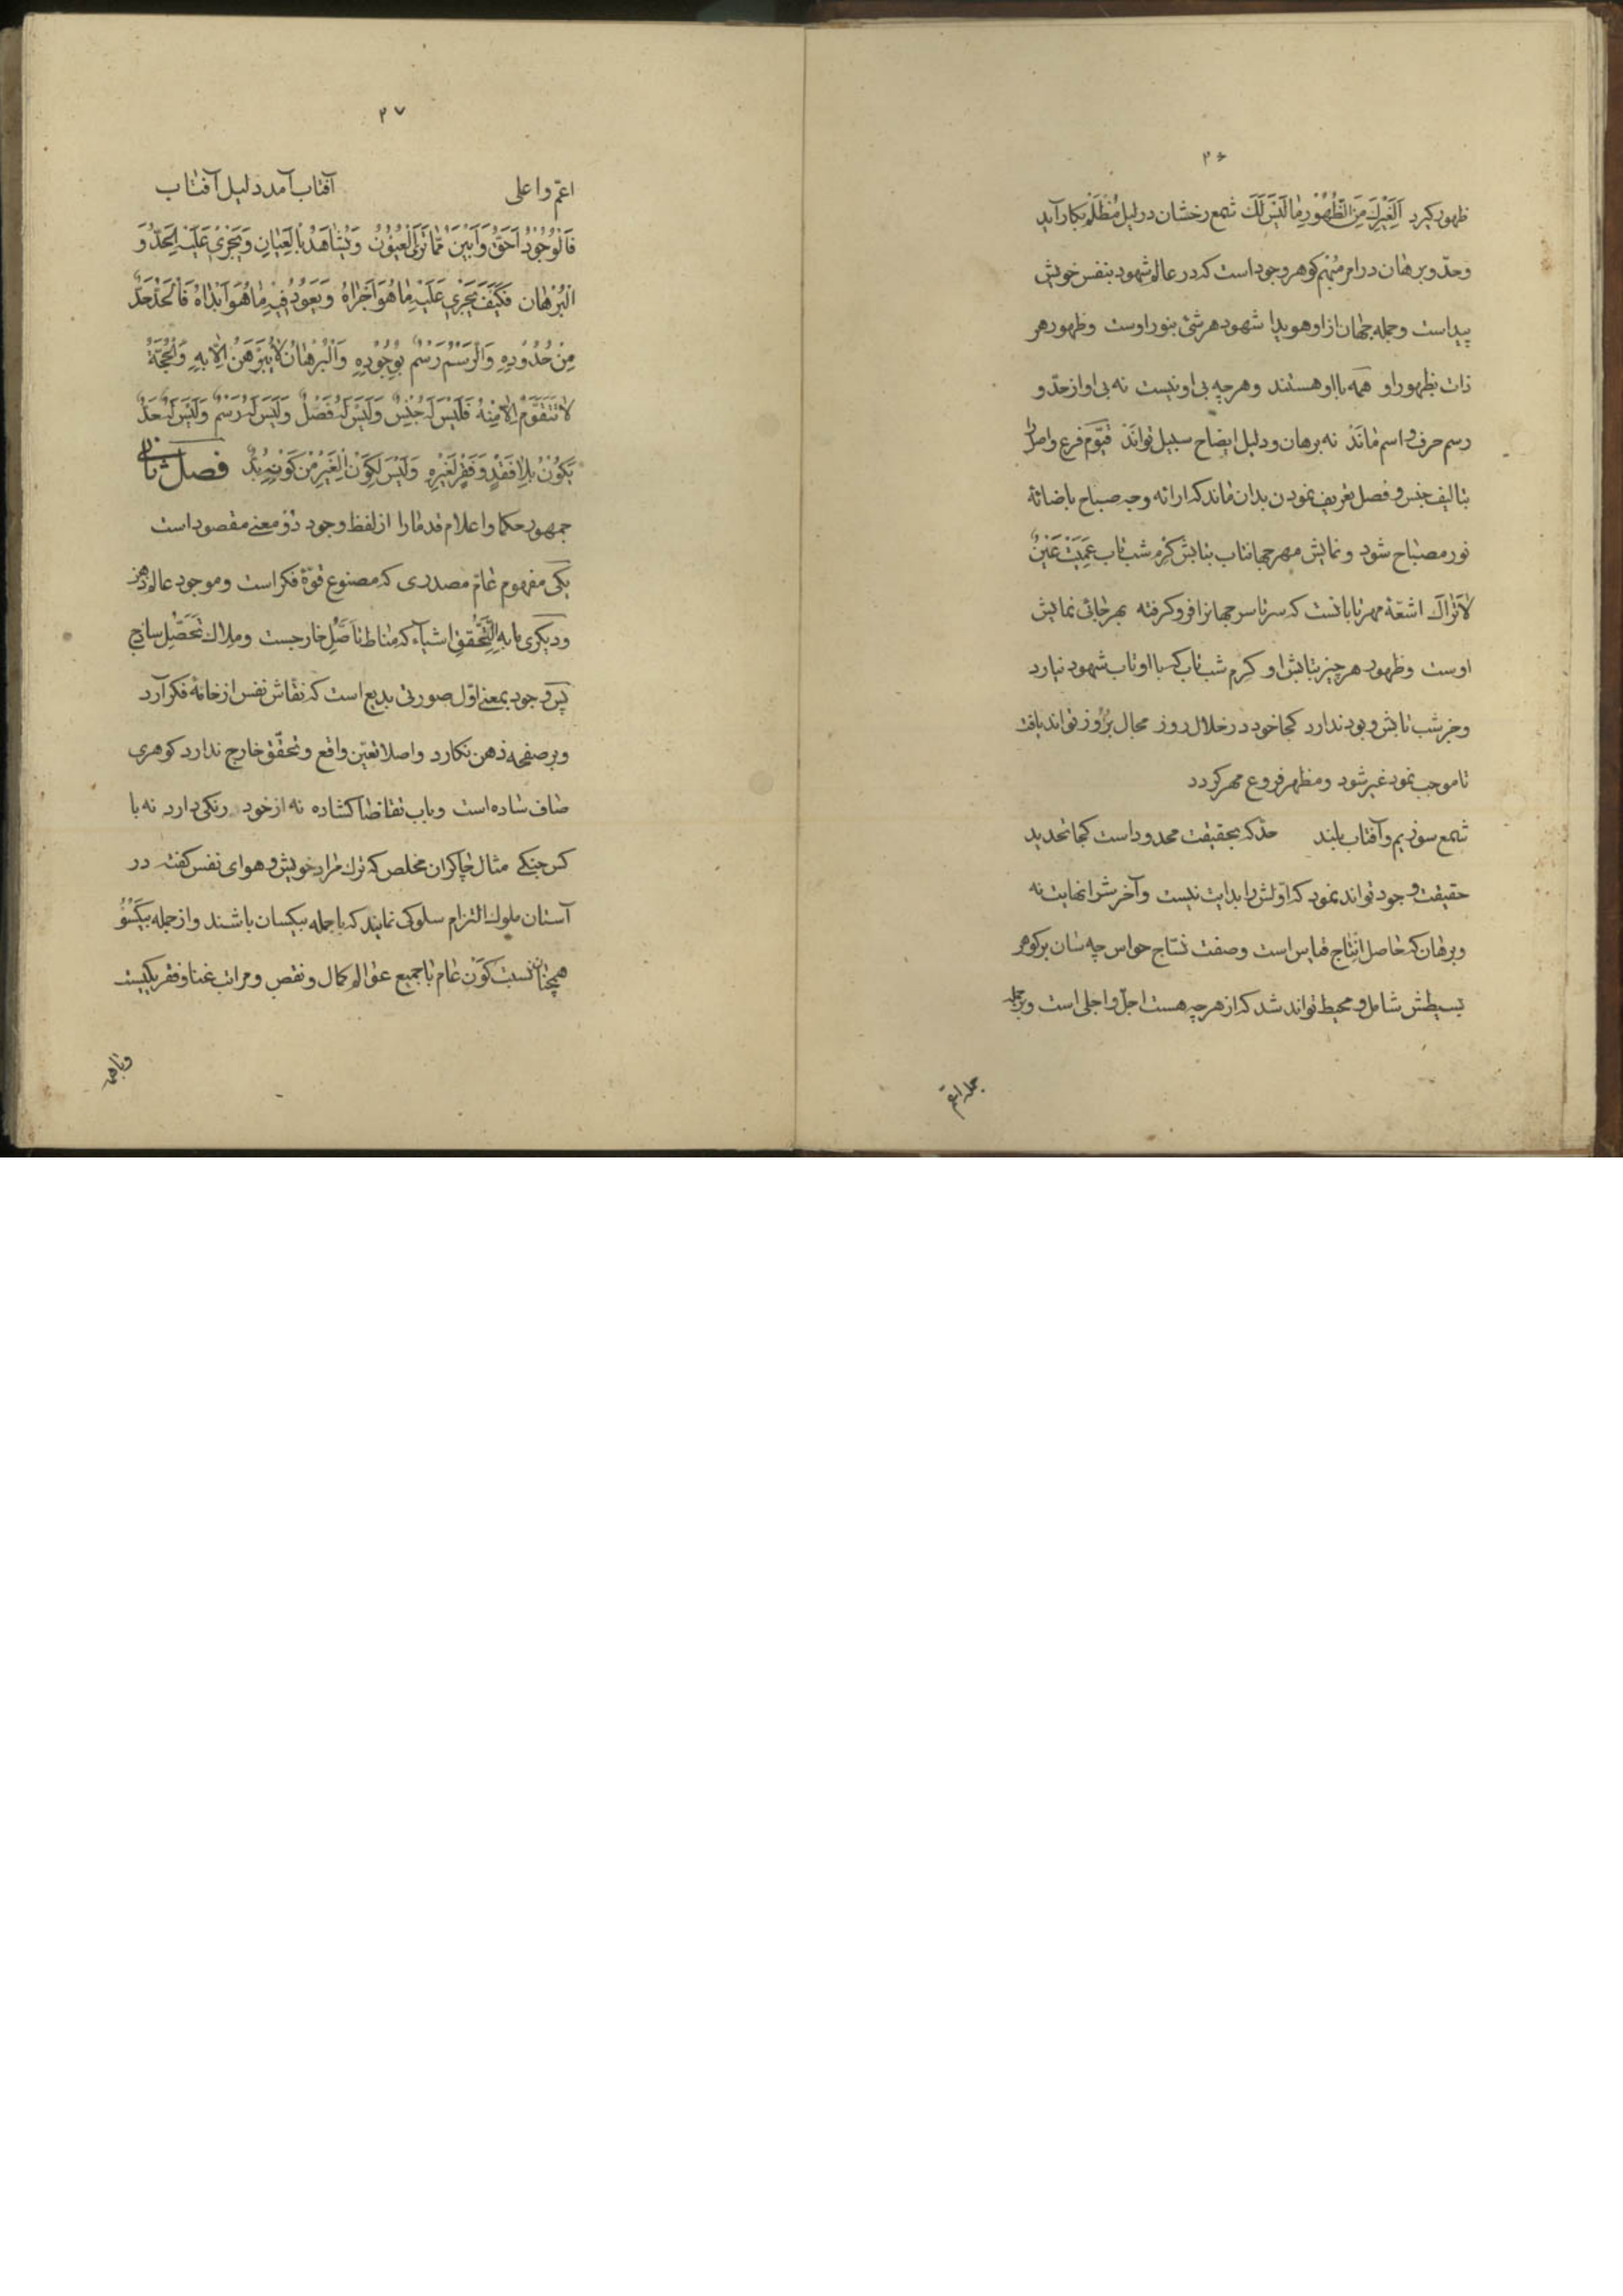 ۳۶
ظهور گیرد اَلِغَیْرِكَ مِنَ الظُّهُوْرِ مٰا لَیْسَ لَكَ شمع رخشان در لیل مُظْلَمْ بکار آید
وحدّ و برهان در امر مُبْهم گوهر وجود است که در عالم شهود بنفس خویش
پیداست و جمله جهان از او هویدا شهود هر شئ بنور اوست و ظهور هر
ذات بظهور او همه با او هستند و هر چه بی او نیست نه بی او از حدّ و
رسم حرف و اسم مٰانَدْ نه برهان و دلیل ایضاح سبیل توانَدْ قیّوم فرع و اصل را
بتالیف جنس و فصل تعریف نمودن بدان ماند که ارائه وجه صباح باضائهٔ
نور مصباح شود و نمایش مهر جهانتاب بتابش کرم شب تاب عَمِیَتْ عَیْنٌ
لاٰتَرٰاكَ اشعّهٔ مهر تابانست که سر تا سر جهانرا فرو گرفته بهر جائی نمایش
اوست و ظهور هر چیز بتابش او کرم شب تاب کسبا او تاب شهود نیارد
وجز شب تابش و بود ندارد کجا خود در خلال روز مجال بُرُوز تواند یافت
تا موجب نمود غیر شود و مظهر فروغ مهر گردد
شمع سوزیم و آفتاب بلند حدّ که بحقیقت محدود است کجا تحدید
حقیقت وجود تواند نمود که اوّلش را بدایت نیست و آخرش را نهایت نه
و برهان که حاصل انتاج قیاس است وصفت نسّاج حواس چه سان بر گوهر
بسیطش شامل و محیط تواند شد که از هر چه هست اجلّ و اجلی است و بر جمله
جمله اعمّ
۳۷
اعمّ و اعلی آفتاب آمد دلیل آفتاب
فَالْوُجُوْدُ اَحَقُّ وَ اَبْیَنُ مِمّٰا تَرَی الْعُیُوْنُ وَ یُشٰاهَدُ بِالْعِیٰانِ وَ یَجْرِیْ عَلَیْهِ الْحَدُّ وَ
الْبُرْهٰان فَکَیْفَ یَجْرِیْ عَلَیْهِ مٰا هُوَ اَجْرٰاهُ وَ یَعُوْدُ فِیْهِ مٰا هُوَ اَبْدٰاهُ فَالْحَدُّ حَدٌّ
مِنْ حُدُوْدِهِ وَ الْرَسْمُ رَسْمٌ بِوُجُوْدِهِ وَ الْبُرْهٰانُ لاٰ یُبَرْهَنُ اِلّاٰ بِهِ وَ الْحُجَّةُ
لاٰ تَتَقَوَّمُ اِلّاٰ مِنْهُ فَلَیْسَ لَهُ جِنْسٌ وَ لَیْسَ لَهُ فَصْلٌ وَ لَیْسَ لَهُ رَسْمٌ وَ لَیْسَ لَهُ حَدٌّ
یَکُوْنُ بِلاٰ فَقْدٍ وَ فَقْرٍ لِغَیْرِهِ وَ لَیْسَ لِکَوْنِ الْغَیْرِ مِنْ کَوْنِهِ بُدٌّ فصل ثانی
جمهور حکما و اعلام قدمارا از لفظ وجود دو معنی مقصود است
یکی مفهوم عامّ مصدری که مصنوع قوّهٔ فکر است و موجود عالم ذهن
و دیگری مابِهِ التَّحَقُّقِ اشیاء که مناط تَاَصُّلِ خارجست و ملاك تَحَصُّلِ ساذج
پس وجود بمعنی اوّل صورتی بدیع است که نقّاش نفس از خامهٔ فکر آرد
و بر صفحه ذهن نگارد و اصلا تعیّن واقع و تحقّق خارج ندارد گوهری
صاف ساده است و باب تقاضا گشاده نه از خود رنگی دارد نه با
کس جنگی مثال چاکران مخلص که ترك مراد خویش و هوای نفس گفته در
آستان ملوك التزام سلوك نمایند که با جمله بیکسان باشند و از جمله بیکسُوْ
همچنان نسبت کَوْن عام با جمیع عوالم کمال و نقص و مراتب غنا و فقر یکیست
وبا همه